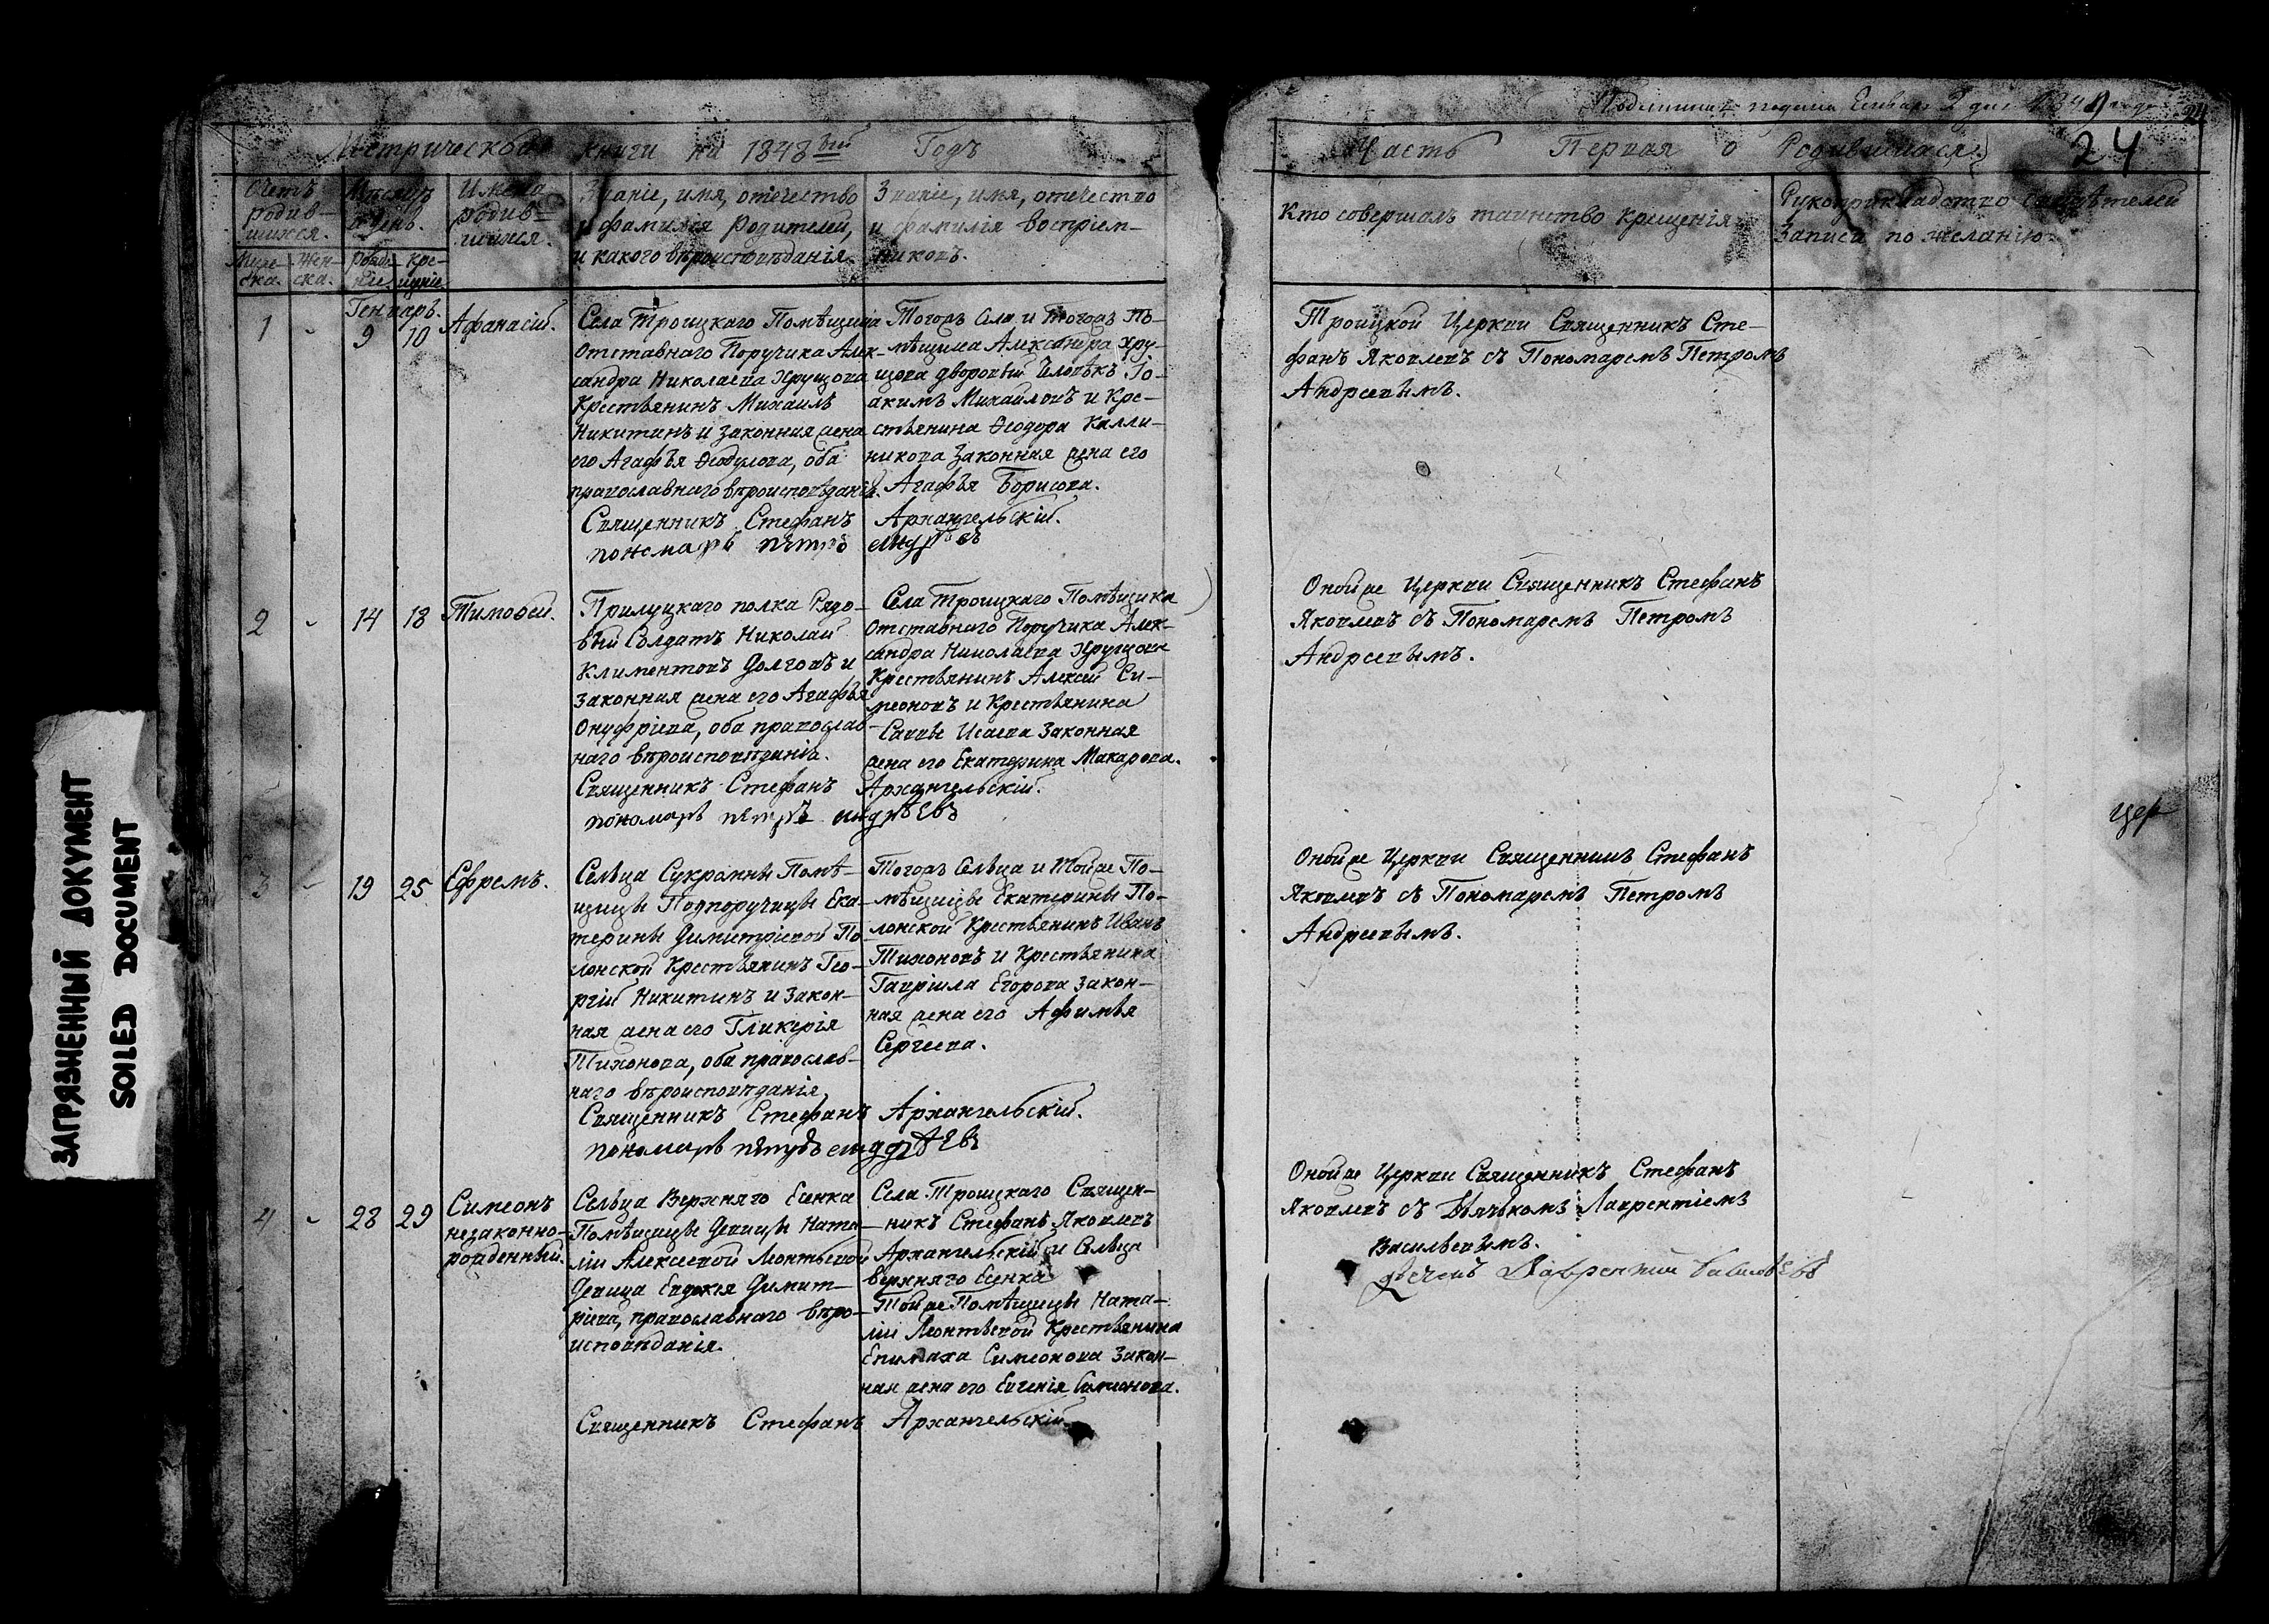 Подлинная подана Генваря 2 дня 1849 года
24
Метрической книги на 1848вый Годъ
Часть Первая о Родившихся.
24
Счетъ родив-
шихся.
Муже-
ска.
Жен-
ска.
Мѣсяцъ
и день.
Рожде-
нія.
кре-
щенія.
Имена
родив-
шихся.
Званіе, имя, отечество
и фамилія Родителей,
и какого вѣроисповѣданія.
Званіе, имя, отечество
и фамилія воспріем-
никовъ.
Кто совершалъ таинство крещенія.
Рукоприкладство свидѣтелей
Записи по желанію.
Генварь.
1
9
10
Афанасій.
Села Троицкаго Помѣщика
Отставнаго Поручика Алек-
сандра Николаева Хрущова
Крестьянинъ Михаилъ
Никитинъ и законная жена
его Агафья Ѳеодулова, оба
православнаго вѣроисповѣданія.
Тогожъ Села и тогожъ По-
мѣщика Александра Хру-
щова дворовый Человѣкъ Іо-
акимъ Михайловъ и Кре-
стьянина Ѳеодора Калли-
никова Законная жена его
Агафья Борисова.
Священникъ Стефанъ Архангельскій.
пономарь петръ андреевъ
Троицкой Церкви Священникъ Сте-
фанъ Яковлевъ съ Пономаремъ Петромъ
Андреевымъ.
2
14
18
Тимоѳей.
Прилуцкаго полка Рядо-
вый Солдатъ Николай
Климентовъ Долговъ и
Законная жена его Агафья
Онуфріева, оба православ-
наго вѣроисповѣданія.
Села Троицкаго Помѣщика
Отставнаго Поручика Алек-
сандра Николаева Хрущова
Крестьянинъ Алексей Си-
меоновъ и Крестьянина
Саввы Исаева Законная
жена его Екатерина Макарова.
Священникъ Стефанъ Архангельскій.
пономарь петръ андрѣевъ
Оной же Церкви Священникъ Стефанъ
Яковлевъ съ Пономаремъ Петромъ
Андреевымъ.
цер
3
19
25
Ефремъ.
Сельца Сукромны Помѣ-
щицы Подпоручицы Ека-
терины Димитріевой По-
лонской Крестьянинъ Гео-
ргій Никитинъ и закон-
ная жена его Гликерія
Тихонова, оба православ-
наго вѣроисповѣданія
Тогожъ Сельца и Тойже По-
мѣщицы Екатерины По-
лонской Крестьянинъ Иванъ
Тихоновъ и Крестьянина
Гавріила Егорова закон-
ная жена его Афимья
Сергеева.
Священникъ Стефанъ Архангельскій.
пономарь петръ андрѣевъ
Оной же Церкви Священникъ Стефанъ
Яковлевъ съ Пономаремъ Петромъ
Андреевымъ.
4
28
29
Симеонъ
незаконно-
рожденный.
Сельца Верхняго Есенка
Помѣщицы Девицы Ната-
ліи Алексеевой Леонтьевой
Девица Евдокія Димит-
ріева, православнаго вѣро-
исповѣданія.
Села Троицкаго Священ-
никъ Стефанъ Яковлевъ
Архангельскій и Сельца
верхняго Есенка
Тойже Помѣщицы Ната-
ліи Леонтьевой Крестьянина
Епимаха Симеонова Закон-
ная жена его Евгенія Симеонова.
Священникъ Стефанъ Архангельскій.
Оной же Церкви Священникъ Стефанъ
Яковлевъ съ Дьячкомъ Лаврентіемъ
Васильевымъ.
Дьячекъ Лаврентий Васильевъ
ЗАГРЯЗНЕННЫЙ ДОКУМЕНТ
SOILED DOCUMENT